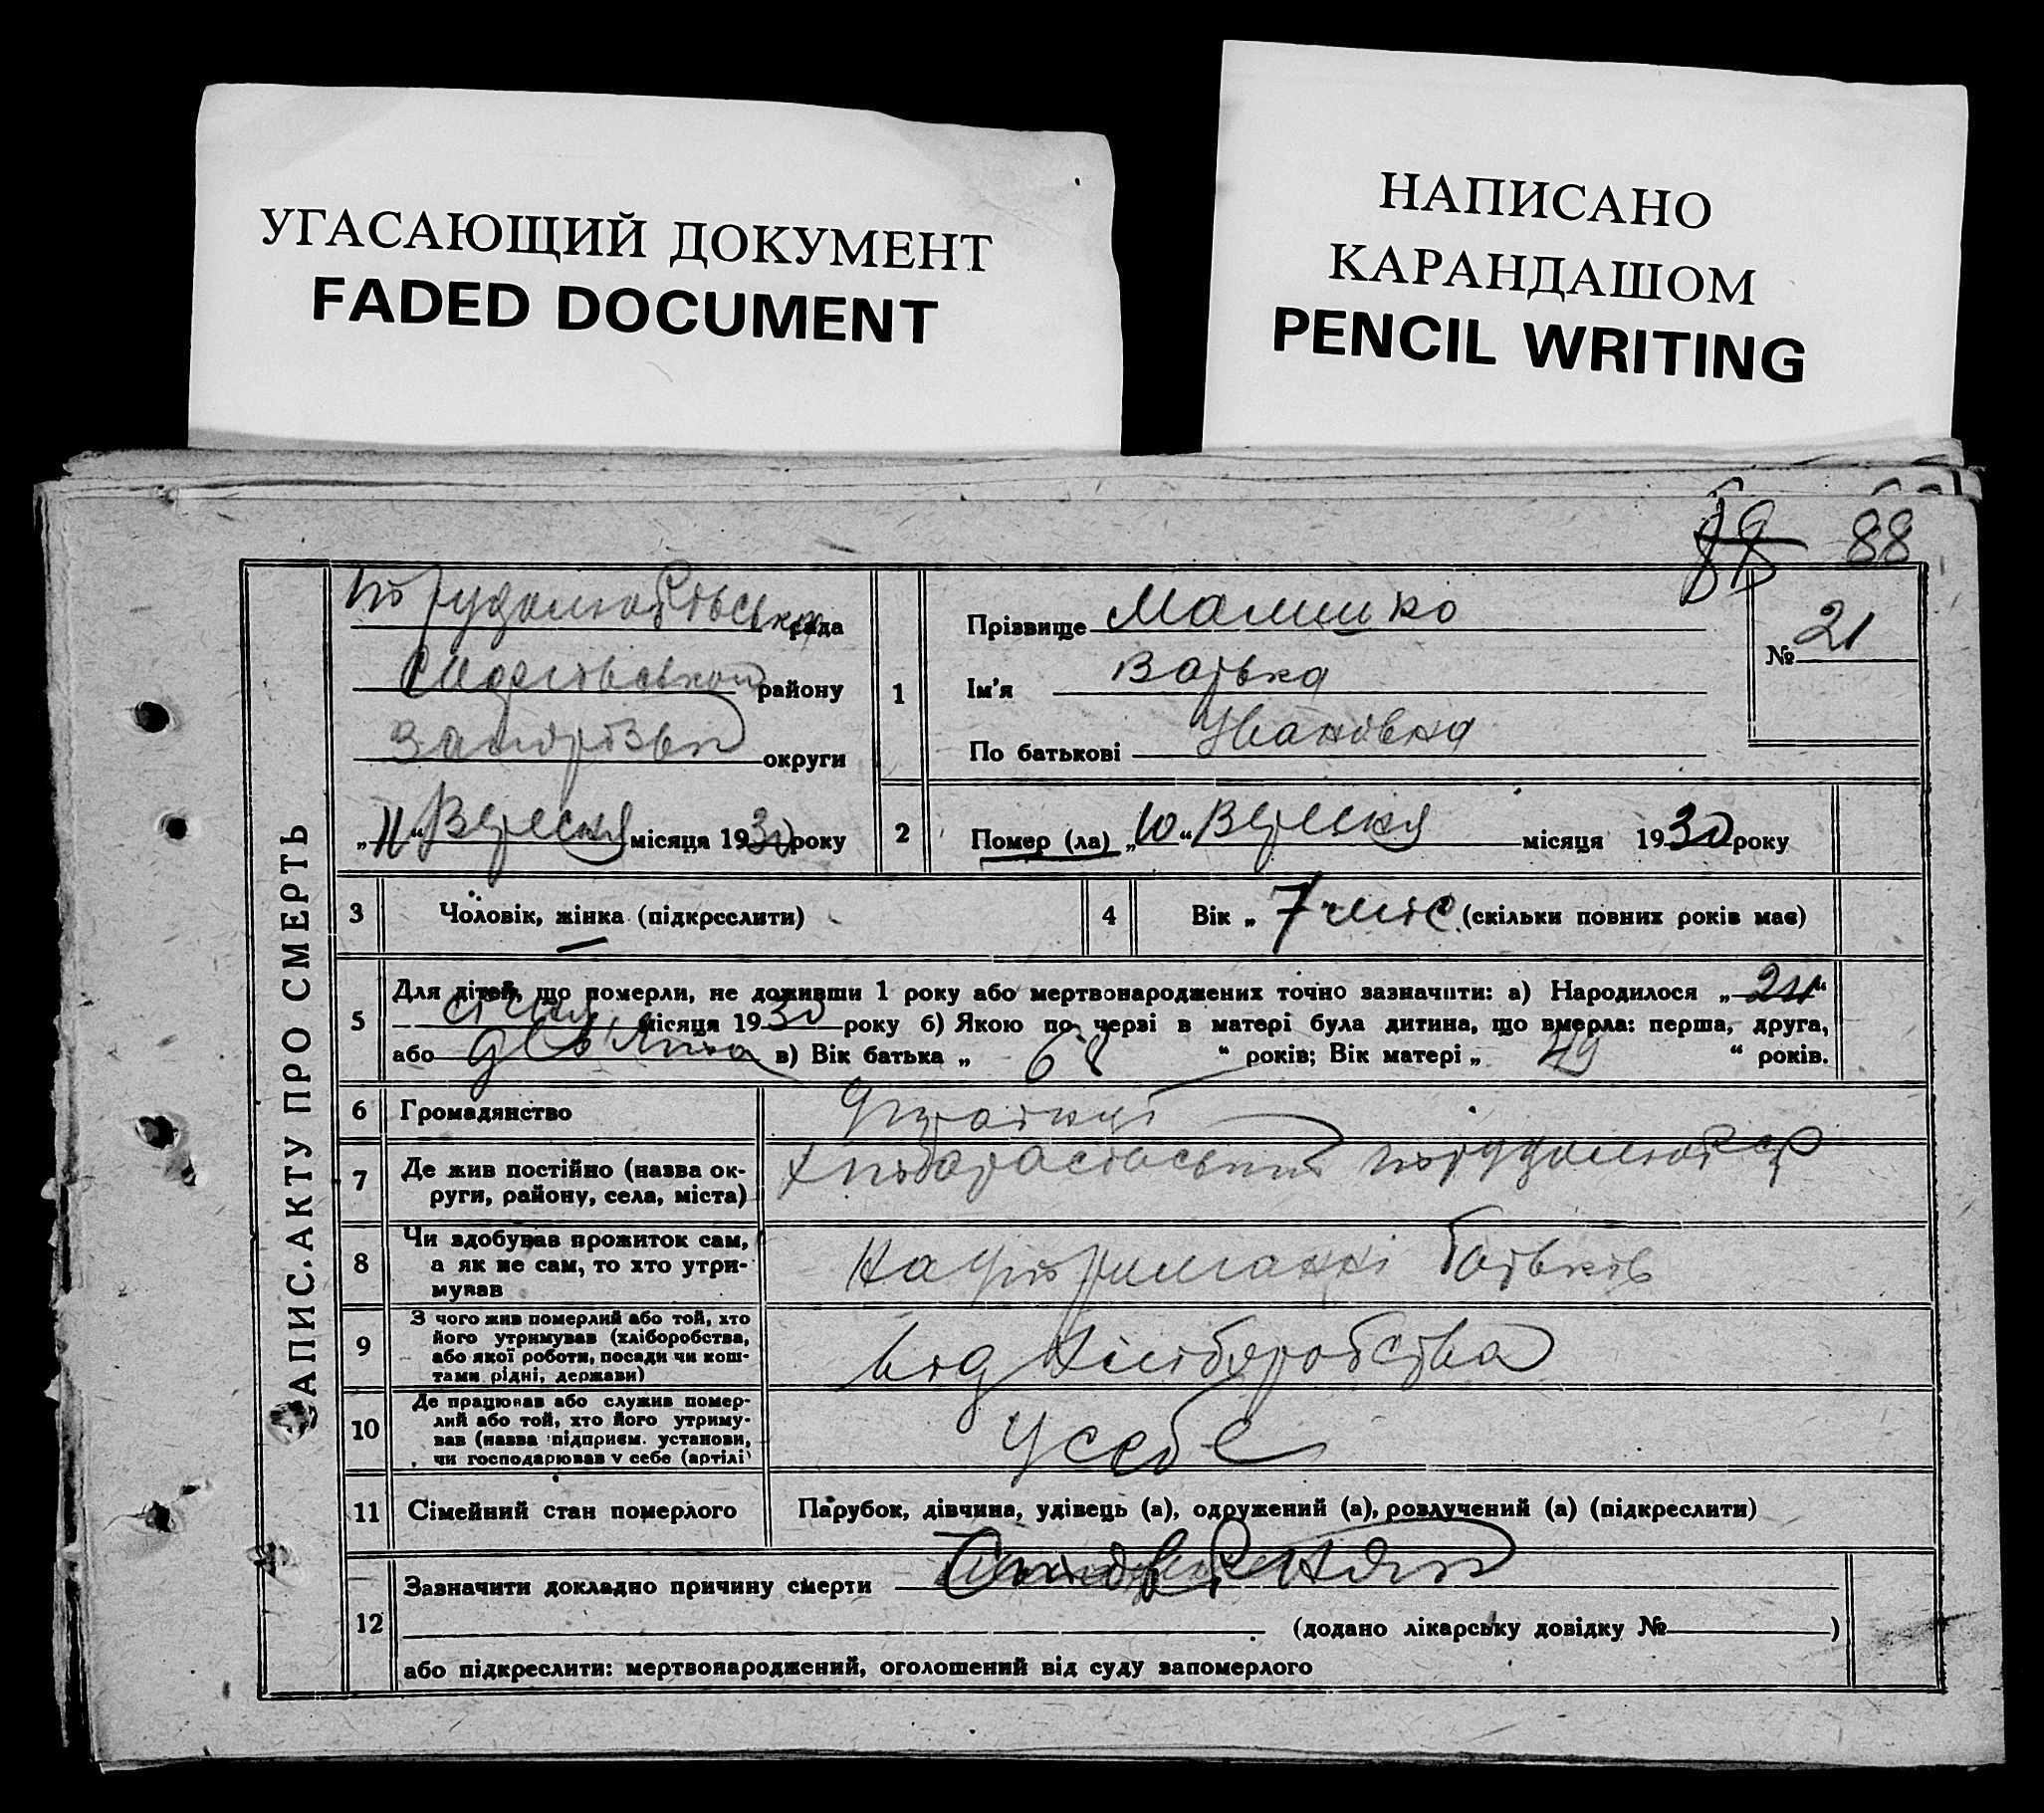 УГАСАЮЩИЙ ДОКУМЕНТ
FADED DOCUMENT
НАПИСАНО
КАРАНДАШОМ
PENCIL WRITING
88
ЗАПИС АКТУ ПРО СМЕРТЬ
рада
району
округи
„11“ Вересня місяця 1930 року
1
Прізвище Малишко
Ім'я
По батькові Ивановна
№ 21
2
Помер (ла) „10“ Вересня місяця 1930 року
3
Чоловік, жінка (підкреслити)
4
Вік „7 міс. (скільки повних років має)
5
Для дітей, що померли, не доживши 1 року або мертвонароджених точно зазначити: а) Народилося „24“
січня місяця 1930 року б) Якою по черзі в матері була дитина, що вмерла: перша, друга,
або дев'ята в) Вік батька „ “ років; Вік матері „49“ років.
6
Громадянство
7
Де жив постійно (назва ок-
руги, району, села, міста)
8
Чи здобував прожиток сам,
а як не сам, то хто утри-
мував
На утриманні батьків
9
З чого жив померлий або той, хто
його утримував (хліборобства,
або якої роботи, посади чи кош-
тами рідні, держави)
від хліборобства
10
Де працював або служив помер-
лий або той, хто його утриму-
вав (назва підприєм. установи,
чи господарював у себе (артілі)
У себе
11
Сімейний стан померлого
Парубок, дівчина, удівець (а), одружений (а), розлучений (а) (підкреслити)
12
Зазначити докладно причину смерти
(додано лікарську довідку № )
або підкреслити: мертвонароджений, оголошений від суду запомерлого